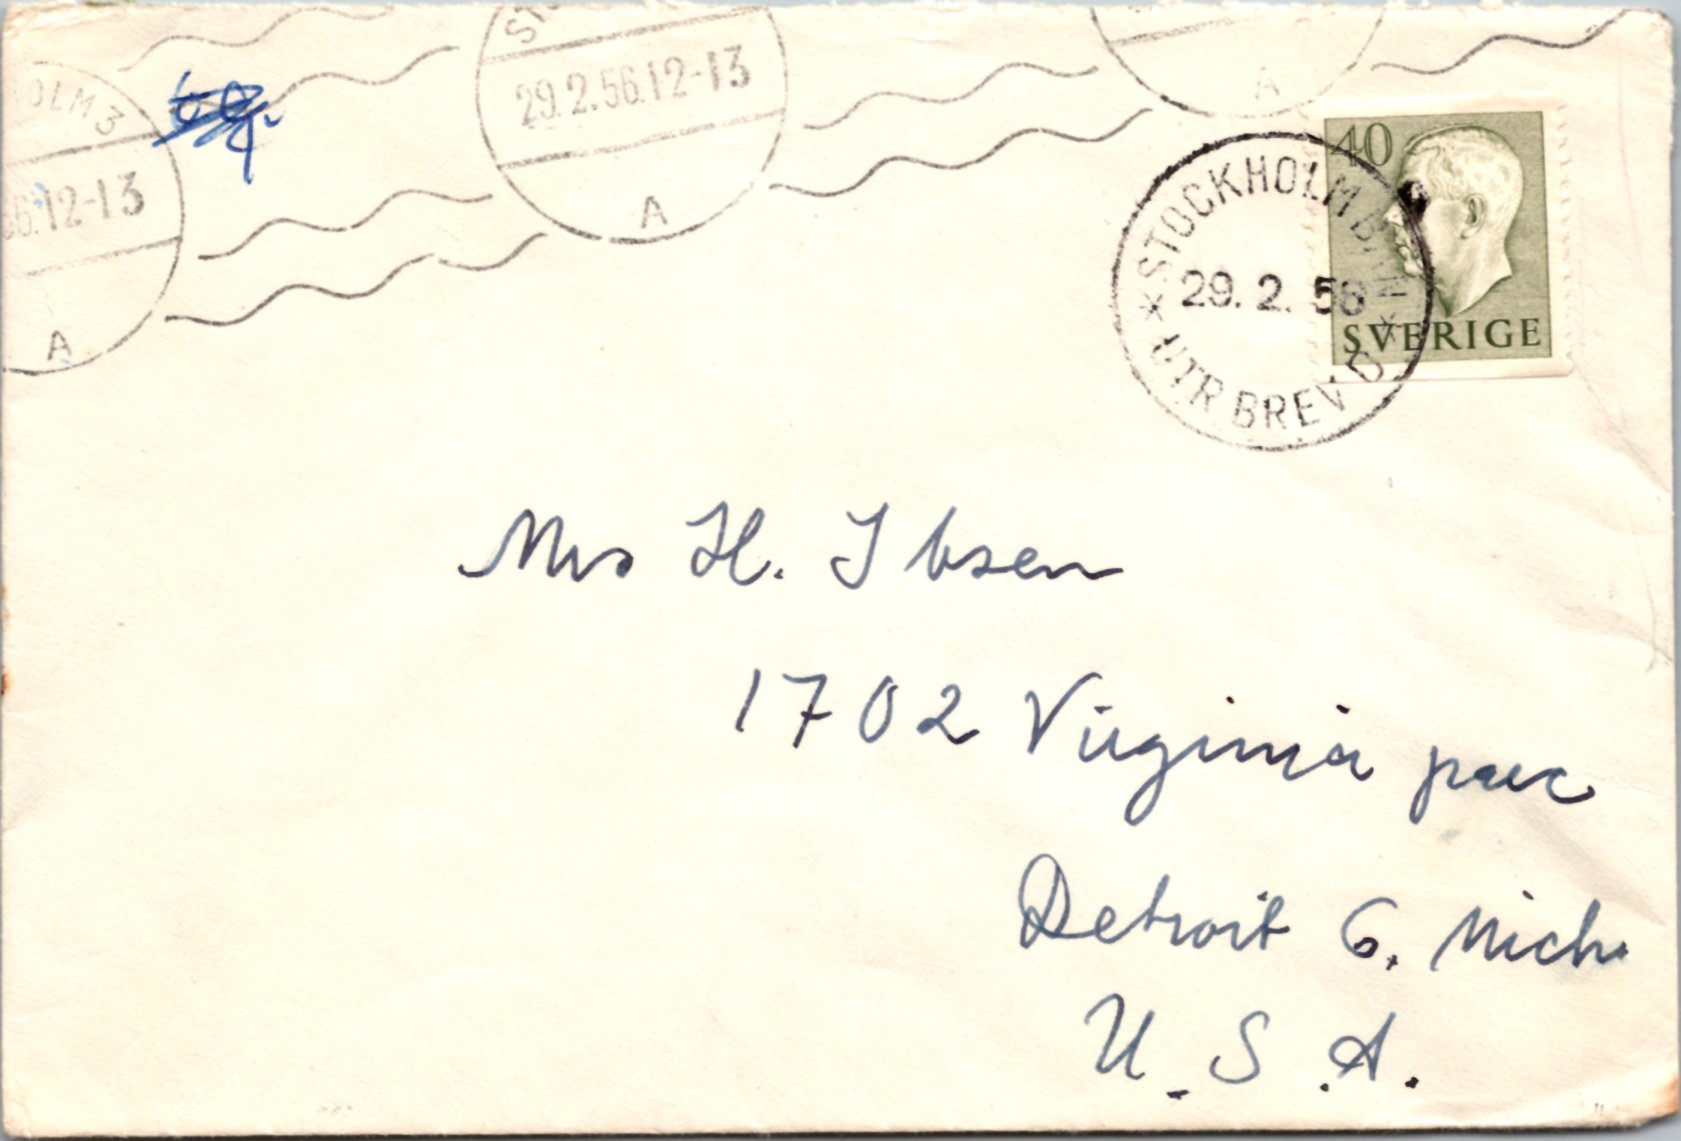 OLM 3
56.12-13
A
29.2.56.12-13
A
A
40
SVERIGE
STOCKHOLM BAN
29. 2. 56
UTR BREV D
Mrs H. Ibsen
1702 Virginia parc
Detroit 6. Mich.
U.S.A.